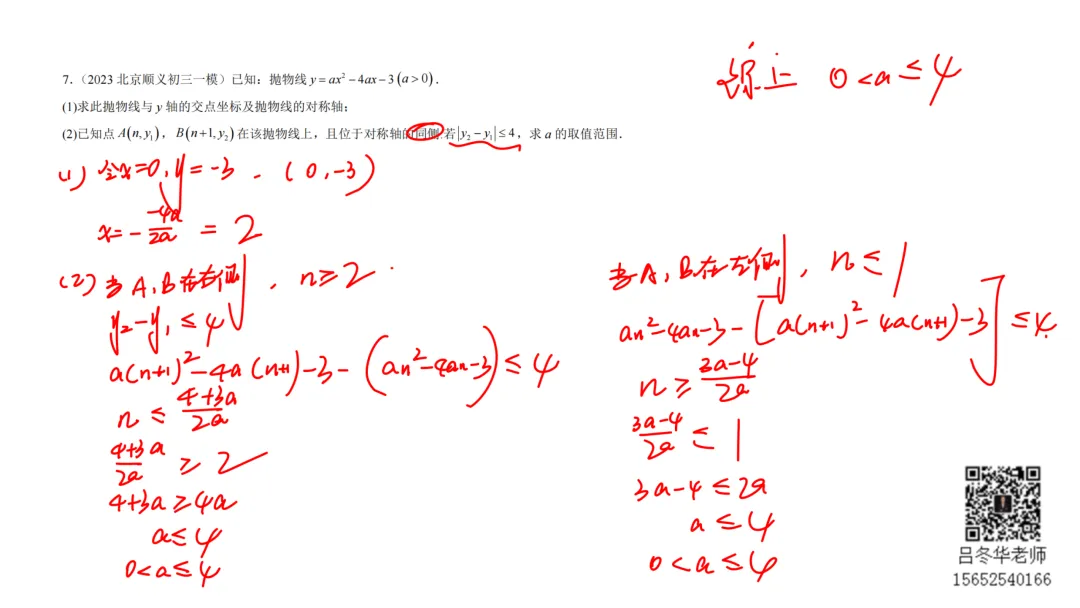 7.（2023 北京顺义初三一模）已知：抛物线 y = ax² − 4ax − 3 (a > 0)．
(1)求此抛物线与 y 轴的交点坐标及抛物线的对称轴；
(2)已知点 A(n, y₁)，B(n+1, y₂) 在该抛物线上，且位于对称轴的同侧.若 |y₂ − y₁| ≤ 4，求 a 的取值范围．
综上 0<a≤4
(1) 令x=0, y=-3 . (0,-3)
x=-\frac{-4a}{2a} = 2
(2) 当A,B在右侧, n≥2
y₂-y₁≤4
a(n+1)²-4a(n+1)-3-(an²-4an-3)≤4
n≤\frac{4+3a}{2a}
\frac{4+3a}{2a}≥2
4+3a≥4a
a≤4
0<a≤4
当A,B在左侧, n≤1
an²-4an-3-[a(n+1)²-4a(n+1)-3]≤4
n≥\frac{3a-4}{2a}
\frac{3a-4}{2a}≤1
3a-4≤2a
a≤4
0<a≤4
吕冬华老师
15652540166